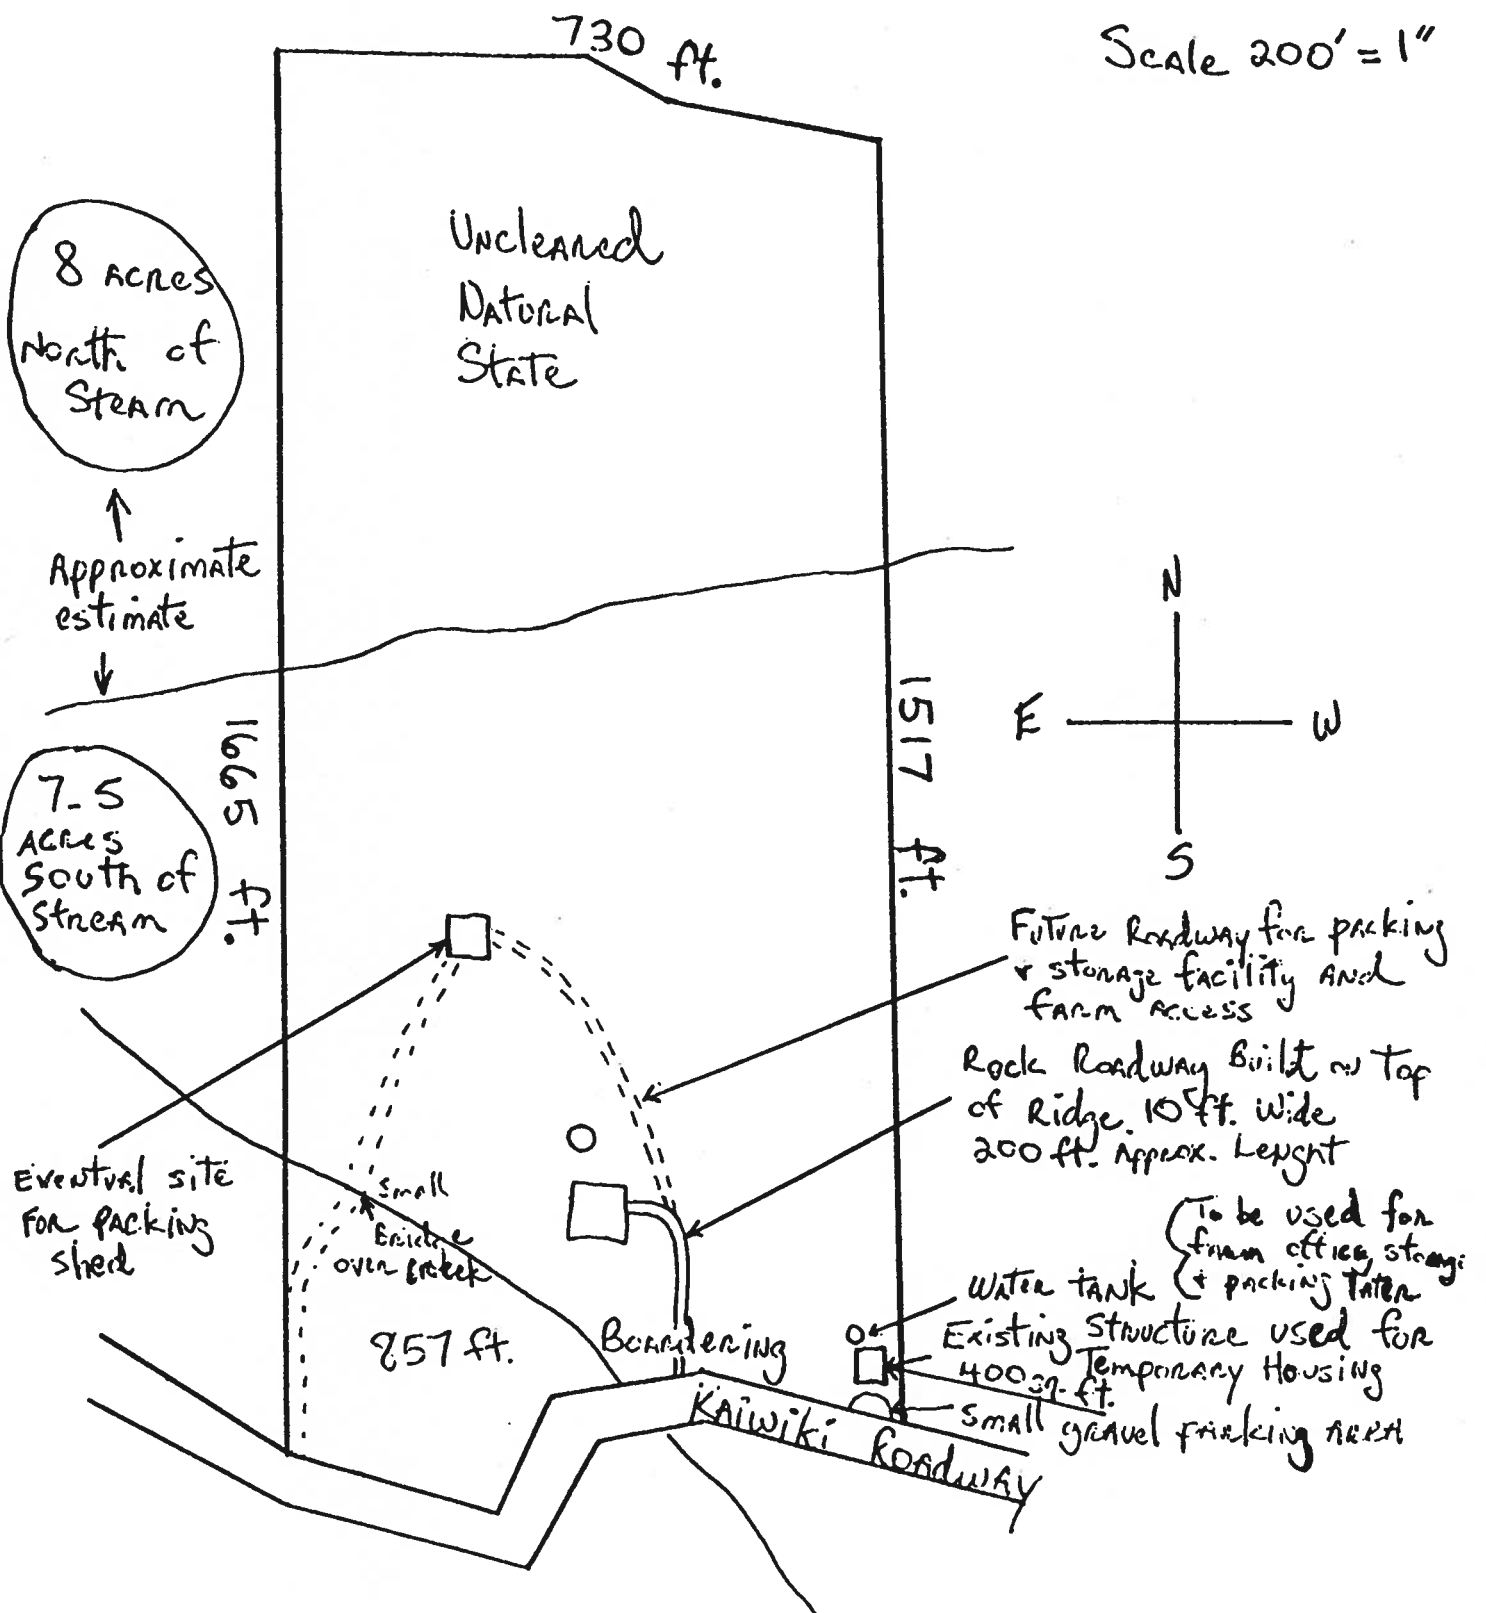 730 ft.
Scale 200' = 1"
Uncleared
Natural
State
8 Acres
North of
Stream
Approximate
estimate
N
E W
S
1665 ft.
1517 ft.
7.5
Acres
South of
Stream
Future Roadway for packing
& storage facility and
farm access
Rock Roadway Built on Top
of Ridge. 10 ft. Wide
200 ft. Approx. Lenght
Eventual site
for packing
shed
Small
over
To be used for
farm office, storage
& packing later
Water tank
Existing Structure used for
400 sq. ft. Temporary Housing
Small gravel parking area
857 ft.
Boardering
Kaiwiki Roadway